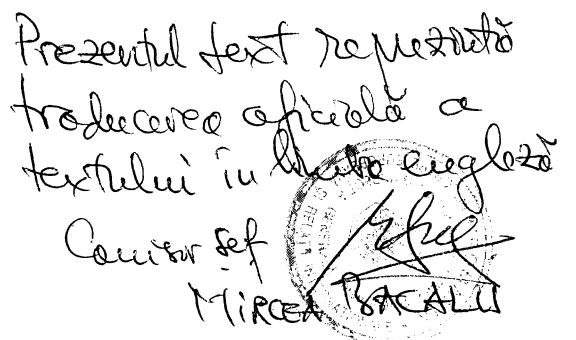 Prezentul text reprezintă
traducerea oficială a
textului în limba engleză
Comisar șef
MIRCEA BACALU